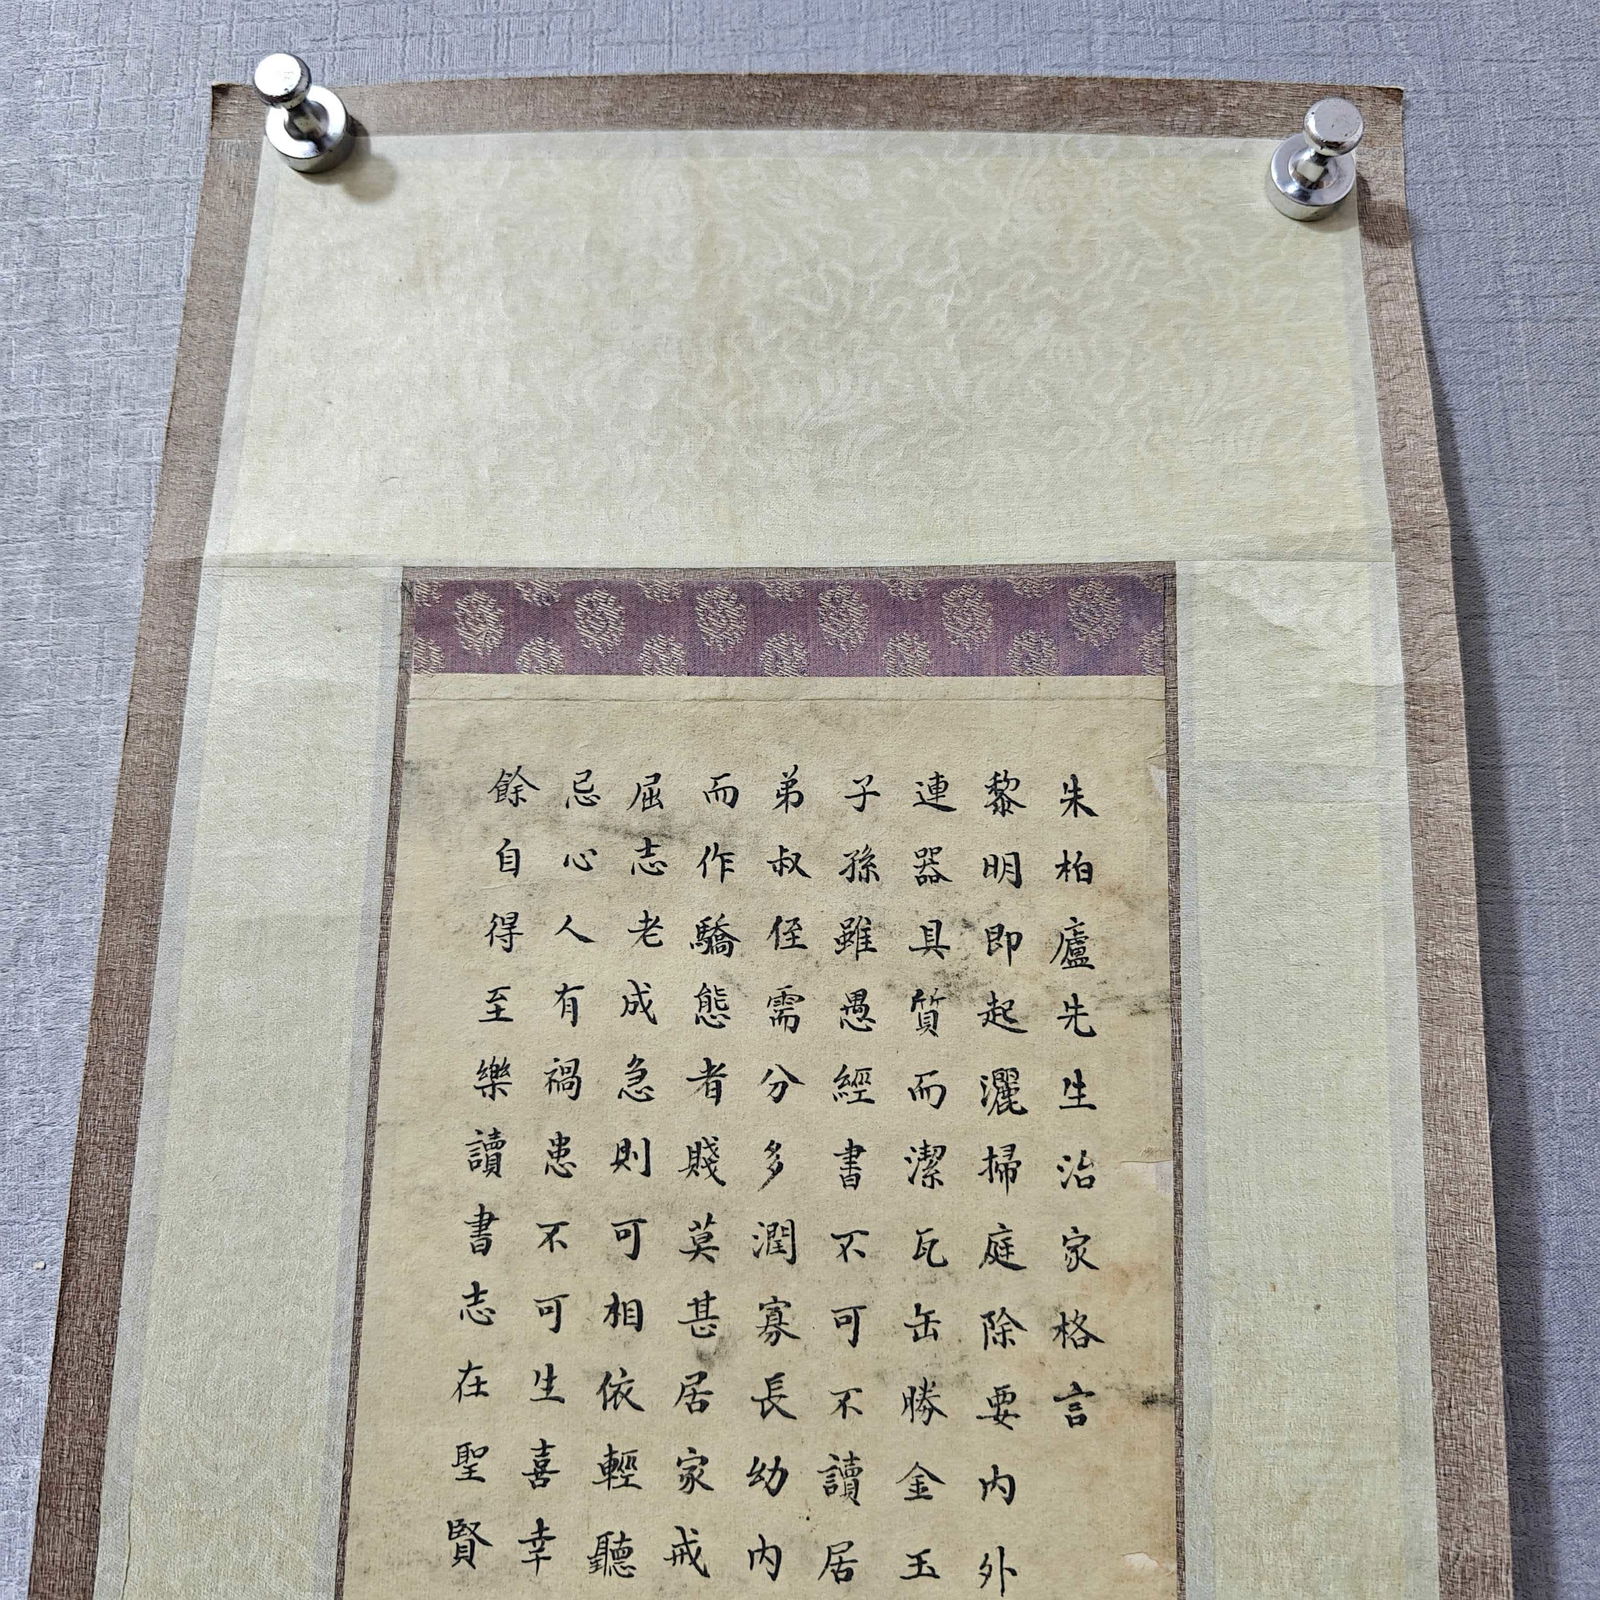 朱柏廬先生治家格言
黎明即起灑掃庭除要內外
連器具質而潔瓦缶勝金玉
子孫雖愚經書不可不讀居
弟叔侄需分多潤寡長幼內
而作驕態者賤莫甚居家戒
屈志老成急則可相依輕聽
忌心人有禍患不可生喜幸
餘自得至樂讀書志在聖賢